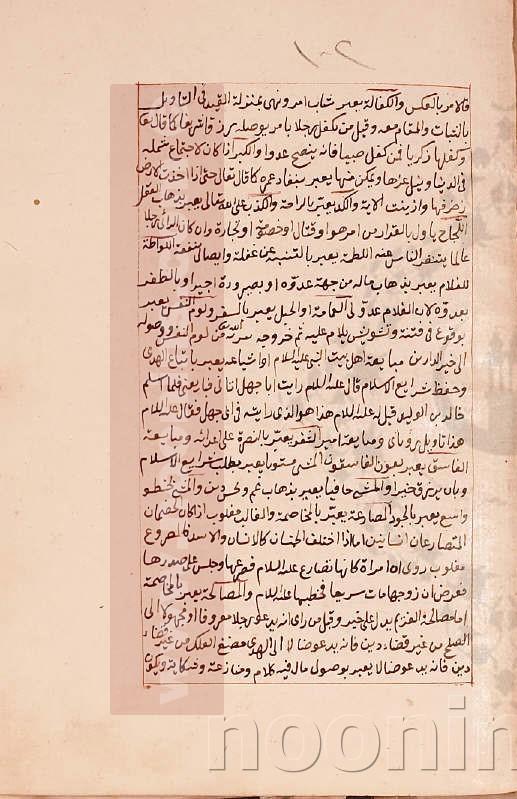 ١٠٢
فالامر بالعكس والكفالة يعبر شاب امر ونهى بمنزلة القيد فى التاويل
بالثبات والمقام معه وقيل من تكفل رجلا بامر يوصله يرزق شريفا كما قال تعالى
وكفلها زكريا فمن كفل صبيا فانه ينصح عدوا والكبر اذا كان لاجتماع شمله
فى الدنيا وينل عزها ويمكن منها يعبر بنفاد عمره كما قال تعالى حتى اذا اخذت الارض
زخرفها وازينت الاية والكد يعبر بالراحة والكذب على الله تعالى يعبر بذهاب العقل
اللجاج يأول بالفرار من امر هوا وقتال او خصم او تجارة وان كان الرائى رجلا
عالما ينتظر الناس عنه اللطمة يعبر بالتنبيه عن غفلة وايصال منفعة اللواطة
للغلام يعبر بذهاب ماله من جهة عدوه او بصيرورة اجيرا او بالظفر
بعدوه لان الغلام عدو لى الحبل يعبر بالسفر ولوم النفس يعبر
بوقوع فى فتنة وتشويش يلام عليه ثم خروجه من لوم النفس ووصوله
الى خير الدارين مبايعة اهل بيت النبى عليه السلام او اشياعه يعبر باتباع الهدى
وحفظ شرايع الاسلام قال عليه السلام رايت ابا جهل اتانى فبايعنى فلما اسلم
خالد بن الوليد قيل له عليه السلام هذا هو الذى رايته فى ابى جهل فقال عليه السلام
هذا تاويل رؤياى ومبايعة امير الثغور يعبر بالنصرة على اعدائه ومبايعة
الفاسق يعبر بعون الفاسقين المشى مستويا يعبر بطلب شرايع الاسلام
وبان يرزق خيرا والمشى حافيا يعبر بذهاب غم وحسن دين والمشى بخطو
واسع يعبر بالجود المصارعة يعبر بالمخاصمة والغالب مغلوب اذا كان الخصمان
المتصارعان انسانين اما اذا اختلف الجنسان كالانسان والاسد فالمصروع
مغلوب روى ان امراة كانها تصارع عليه السلام فصرعها وجلس على صدرها
فعرض ان زوجها مات سريعا فخطبها عليه السلام والمصالحة يعبر بالمخاصمة
اما مصالحة الغريم يدل على خير وقيل من راى انه يدعو رجلا معروفا او مجهولا الى
الصلح من غير قضاء دين فانه يدعو ضالا الى الهدى من غير قضاء
دين فانه يدعو ضالا يعبر بوصول مال فيه كلام ومنازعة وشكاية ويكون
noonin